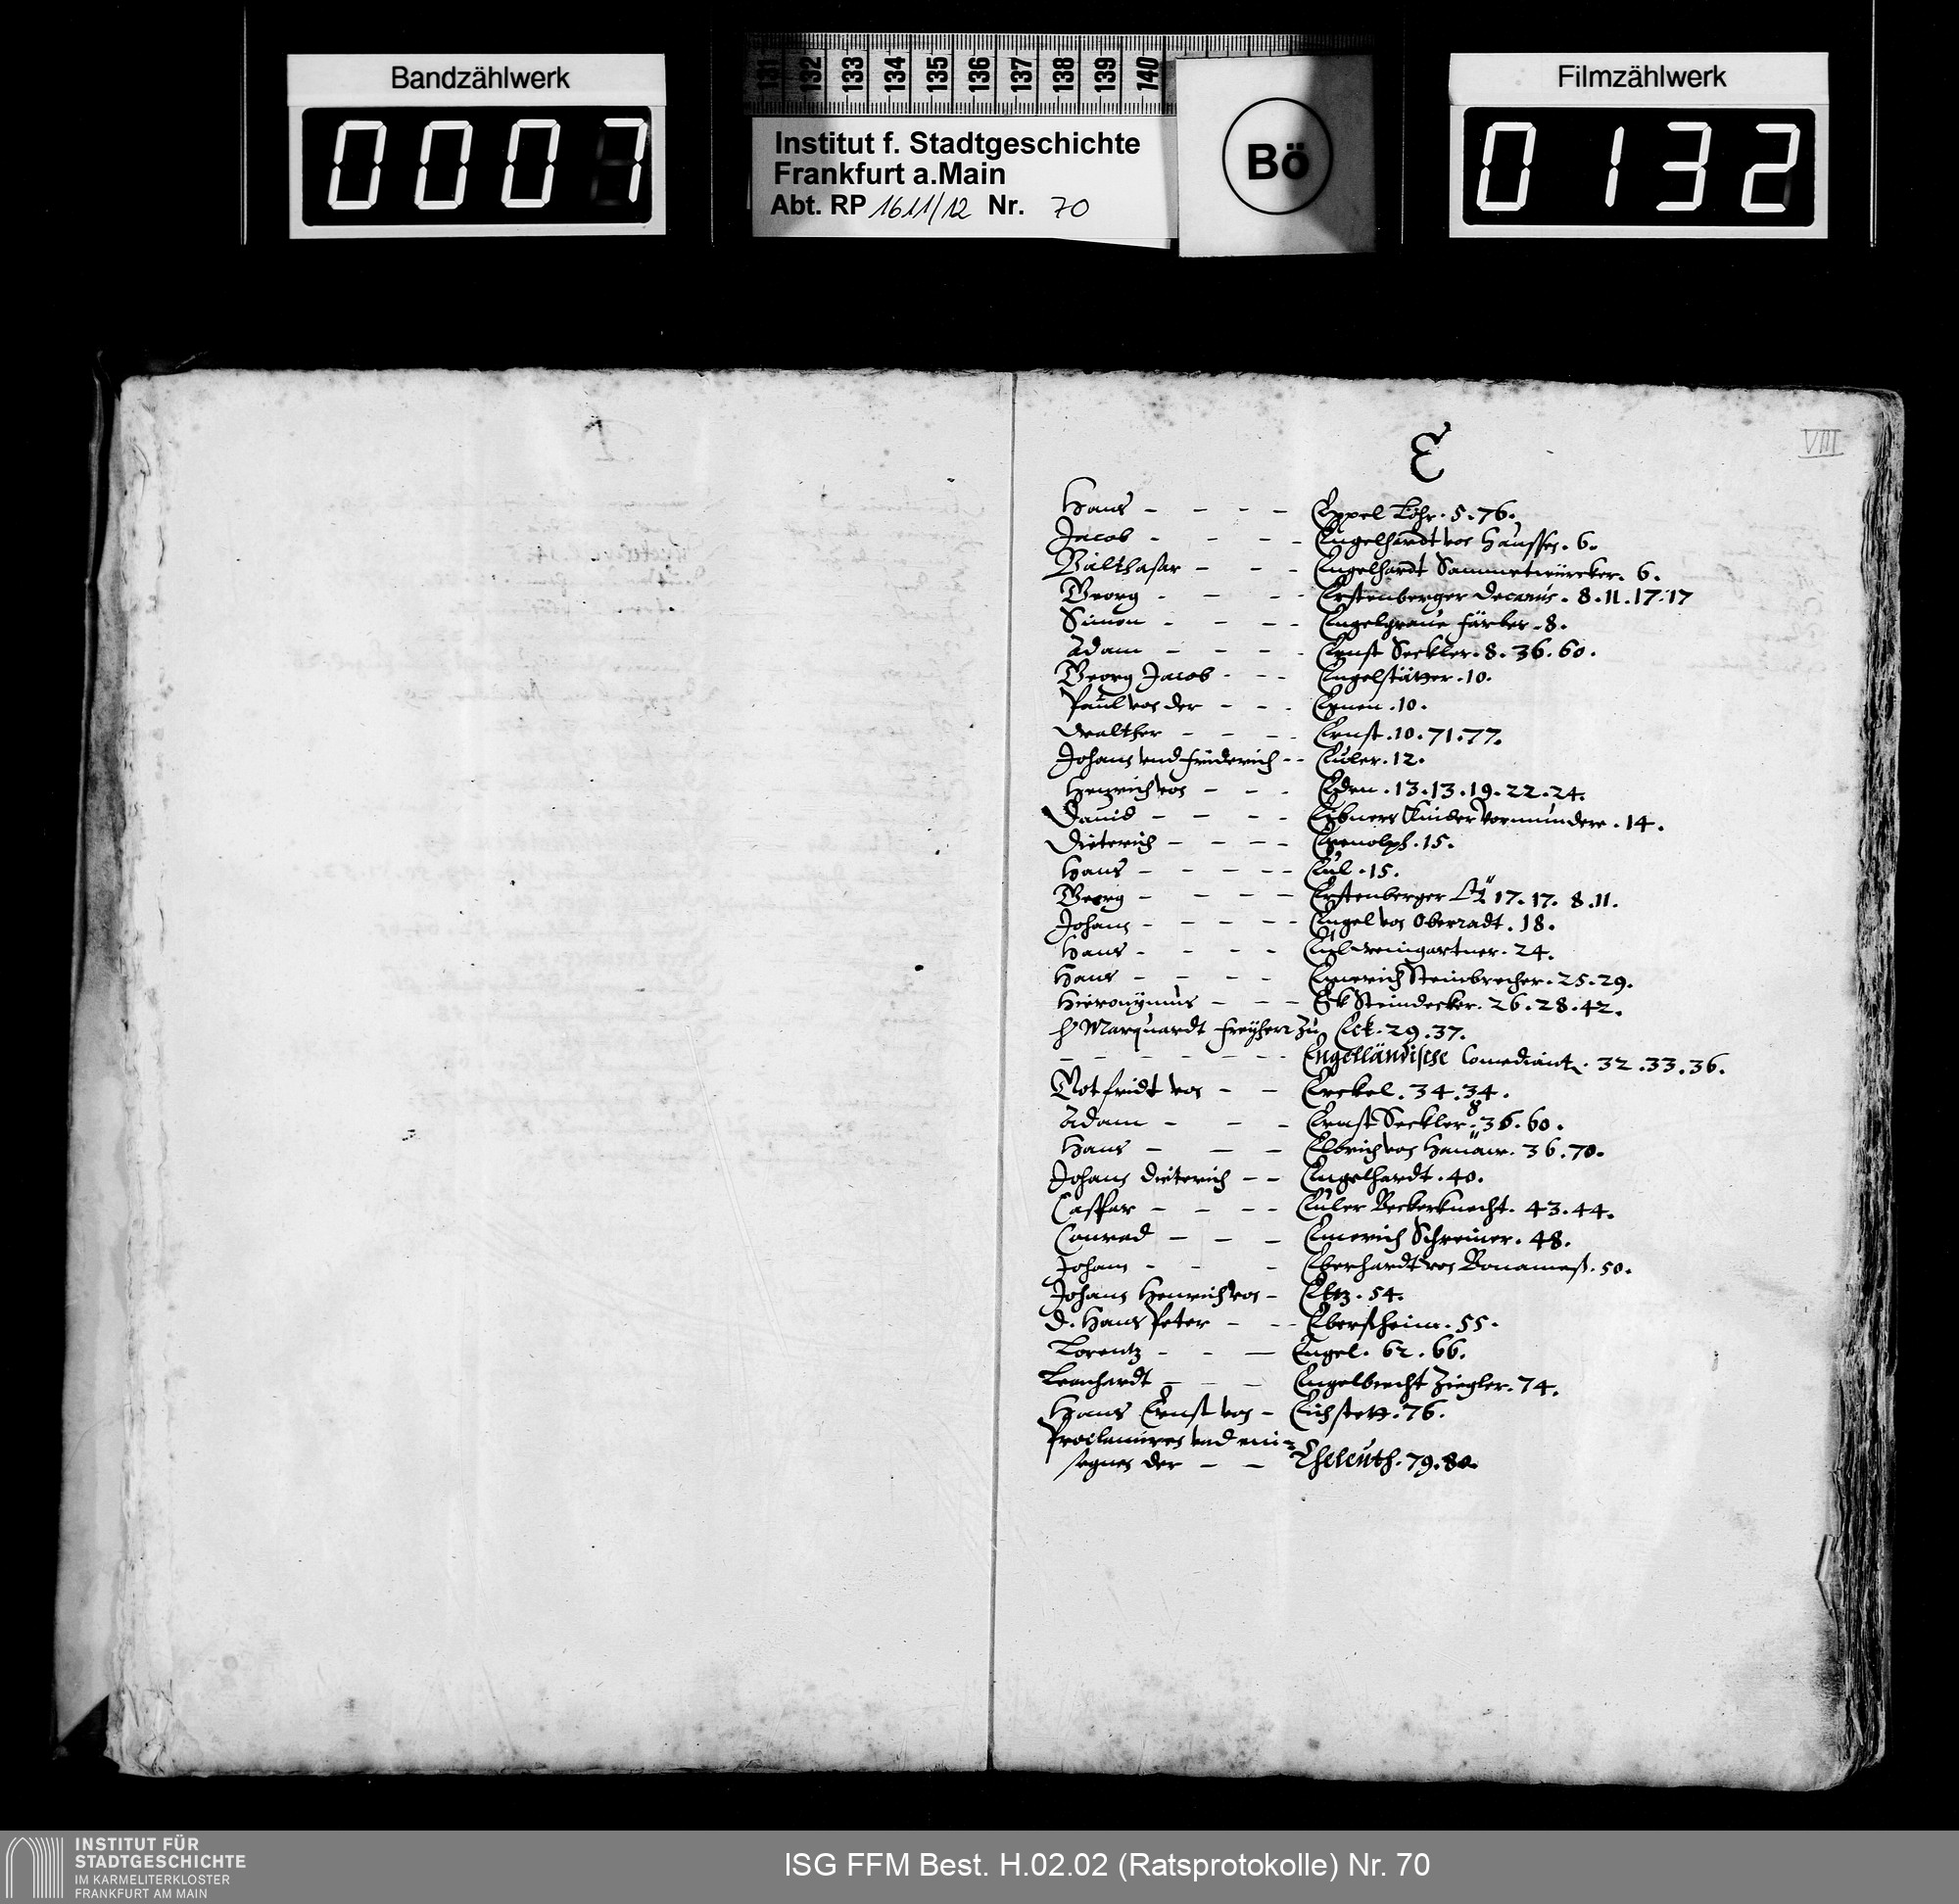 Bandzählwerk
0007
131 132 133 134 135 136 137 138 139 140
Institut f. Stadtgeschichte
Frankfurt a.Main
Abt. RP 1611/12 Nr. 70
Bö
Filmzählwerk
0132
VIII
E
Hans - - - - Eppel Löhr. 5. 76.
Jacob - - - - Engelhardt von Haussen. 6.
Balthasar - - - Engelhardt Sammetwürcker. 6.
Georg - - - - Erstenberger Decanus. 8. 11. 17. 17
Simon - - - - Engelgraue färber. 8.
Adam - - - - Ernst Seckler. 8. 36. 60.
Georg Jacob - - - Engelstätter. 10.
Paul von der - - - 10.
Walther - - - - Ernst. 10. 71. 77.
Johann vnd friderich - - Euler. 12.
Henrich von - - - Eden. 13. 13. 19. 22. 24.
Dauid - - - - Kinder Vormündere. 14.
Dieterich - - - - 15.
Hans - - - - - Eul. 15.
Georg - - - - Erstenberger 17. 17. 8. 11.
Johann - - - - - Engel von Oberradt. 18.
Hans - - - - Eul weingartner. 24.
Hans - - - - Emerich Steinbrecher. 25. 29.
Hieronymus - - - Eck Steindecker. 26. 28. 42.
H Marquardt Freyherr zu Eck. 29. 37.
- - - - - - - Engelländische Comediant. 32. 33. 36.
Gotfridt von - - Erckel. 34. 34.
Adam - - - Ernst Seckler. 8 36. 60.
Hans - - - Elbrich von Hanaw. 36. 70.
Johann Dieterich - - Engelhardt. 40.
Caspar - - - - Euler Beckerknecht. 43. 44.
Conrad - - - Emerich Schreiner. 48.
Johann - - - Eberhardt von Bonameß. 50.
Johann Henrich von - Eltz. 54.
D. Hans Peter - - - Ebersheim. 55.
Lorentz - - - Engel. 62. 66.
Leonhardt - - - Engelbrecht Ziegler. 74.
Hans Ernst von - Eichstett. 76.
Proclamiren vnd ein-
segnen der - - Eheleuth. 79. 80.
INSTITUT FÜR
STADTGESCHICHTE
IM KARMELITERKLOSTER
FRANKFURT AM MAIN
ISG FFM Best. H.02.02 (Ratsprotokolle) Nr. 70